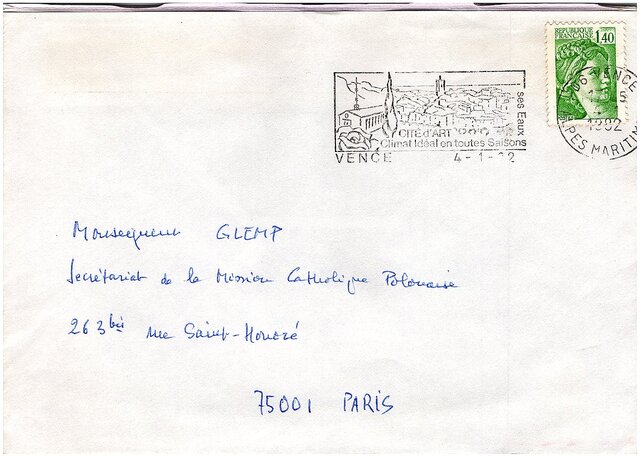 REPUBLIQUE
FRANCAISE
1,40
06 VENCE
1982
ALPES MARITIMES
ses Eaux
CITÉ d'ART
Climat Idéal en toutes Saisons
VENCE 4-1-
Monseigneur GLEMP
Secrétariat de la Mission Catholique Polonaise
263 bis rue Saint-Honoré
75001 PARIS